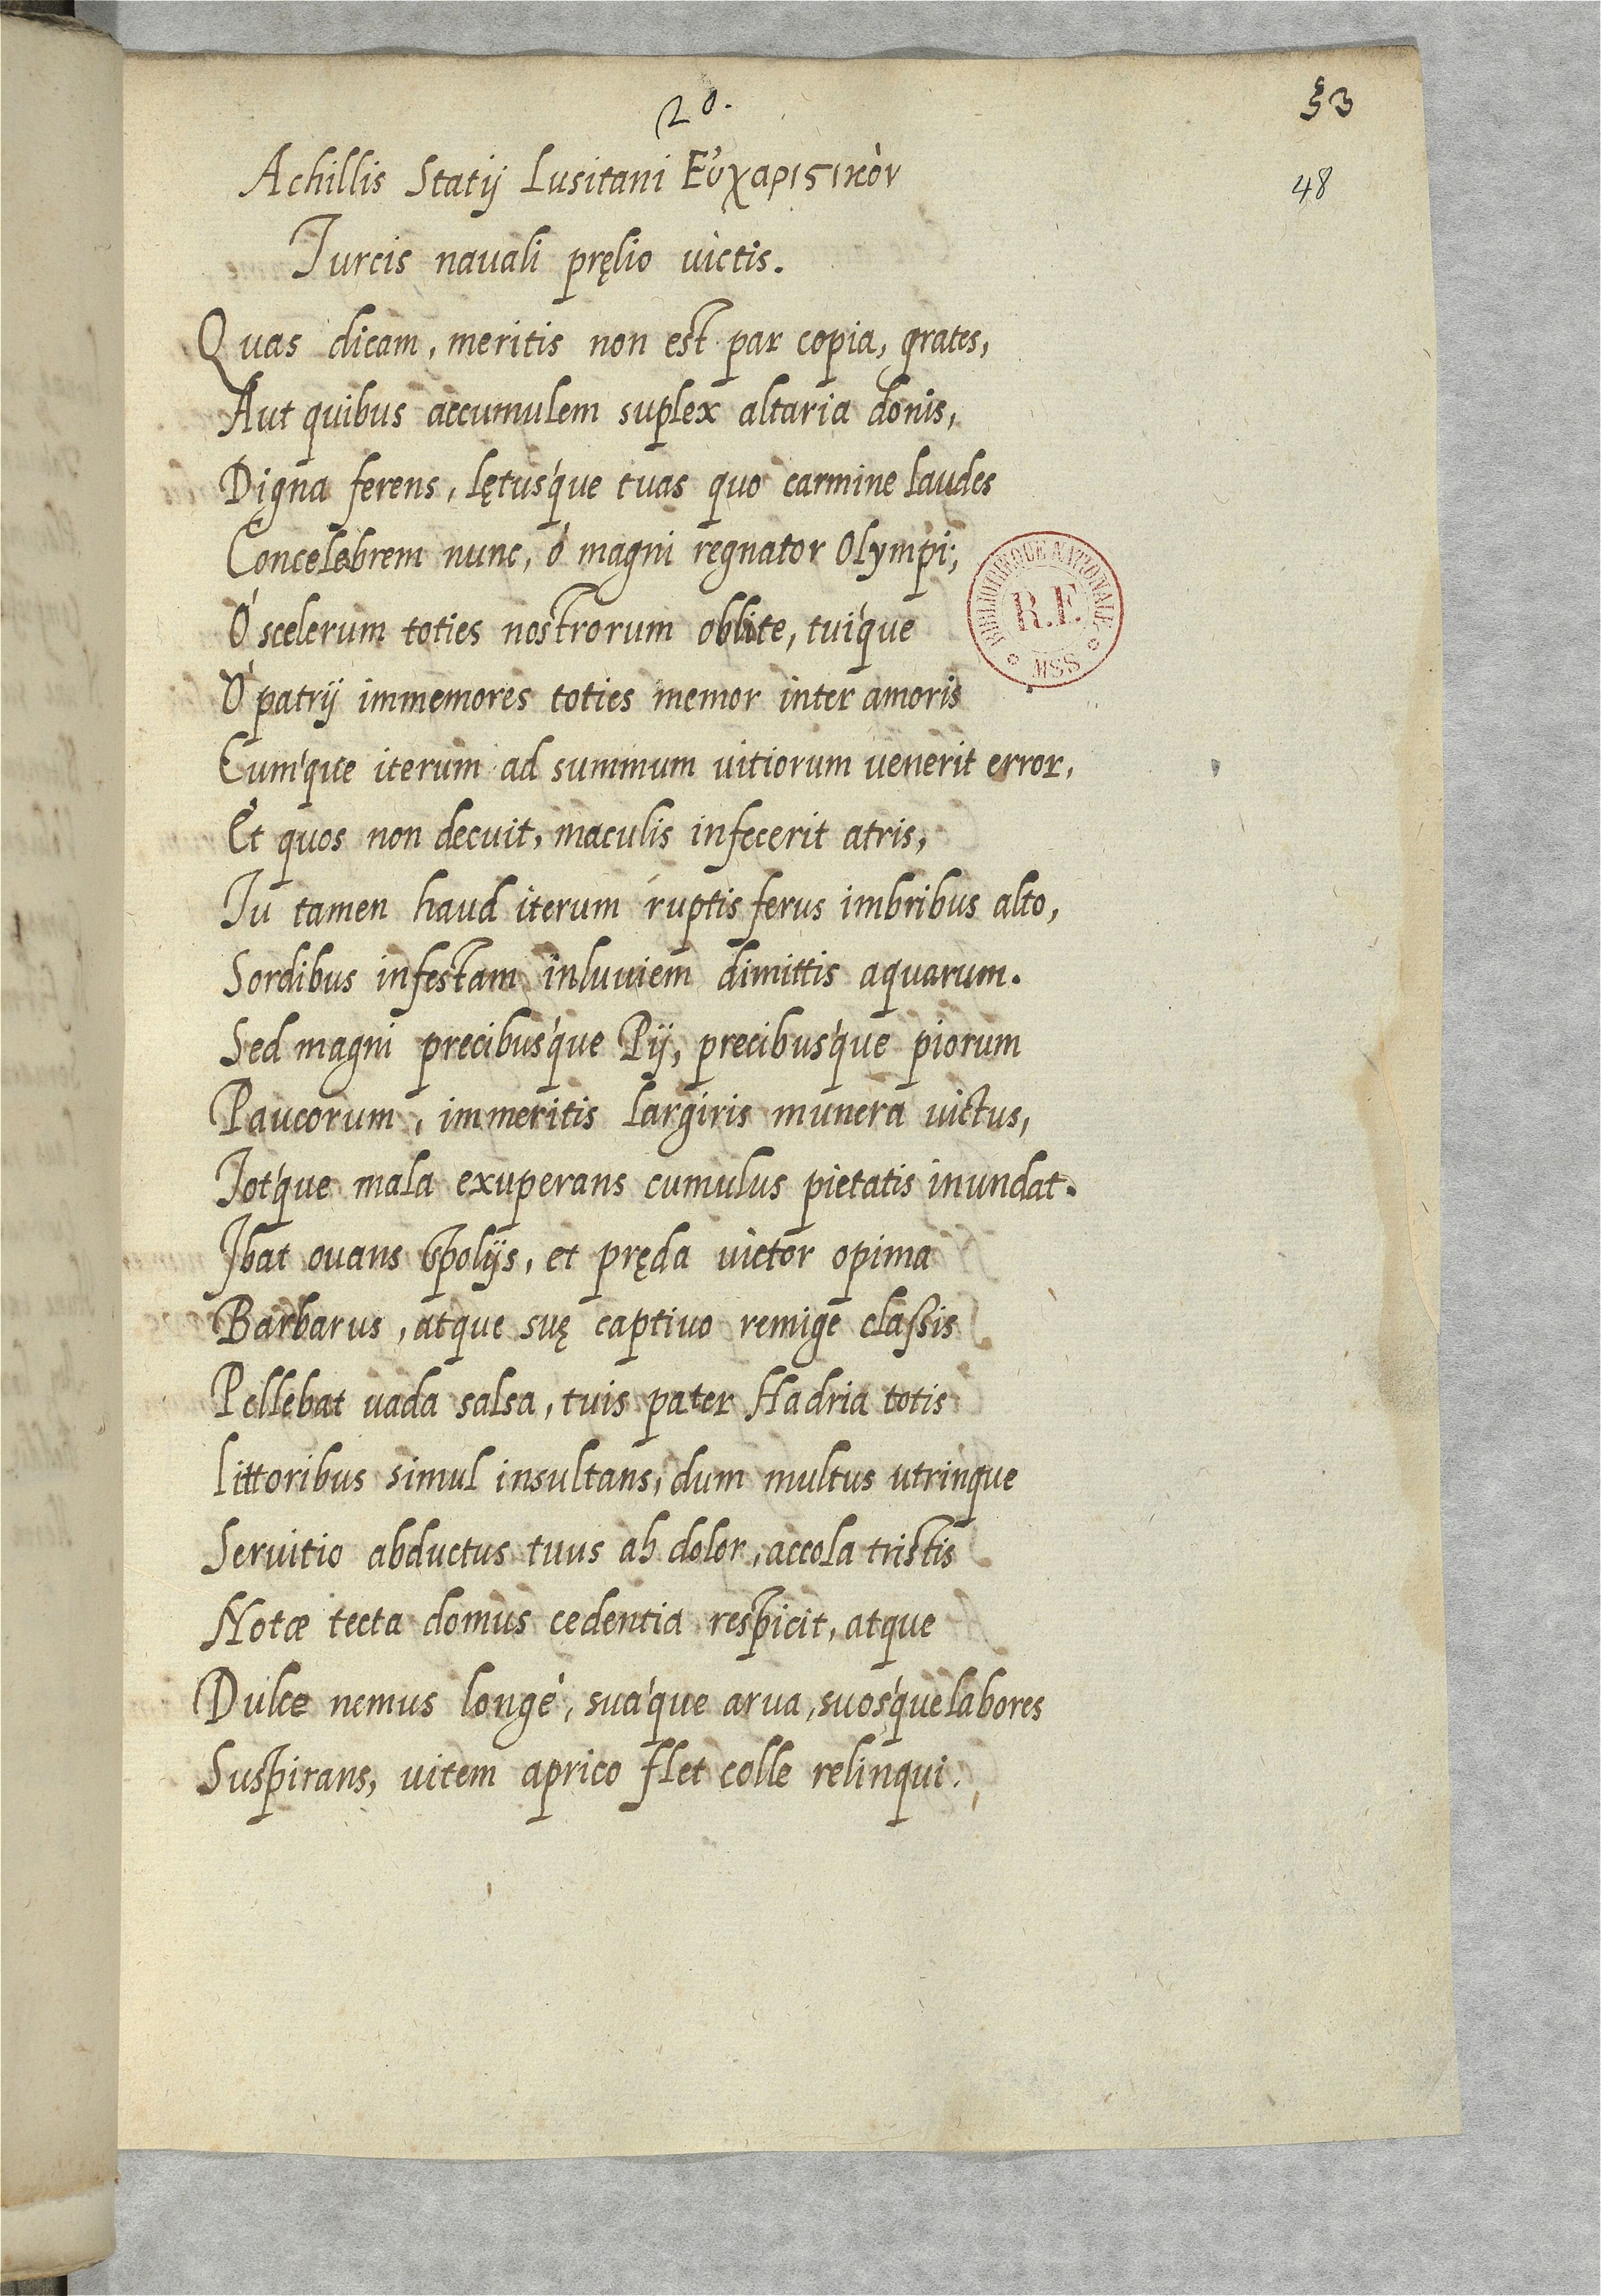 20.
53
48
Achillis Statij Lusitani Εὐχαριϛικὸν
Turcis nauali pręlio uictis.
Quas dicam, meritis non est par copia, grates,
Aut quibus accumulem suplex altaria donis,
Digna ferens, lętus'que tuas quo carmine laudes
Concelebrem nunc, ó magni regnator Olympi;
Ó scelerum toties nostrorum oblite, tui'que
Ó patrij immemores toties memor inter amoris
Cum'que iterum ad summum uitiorum uenerit error,
Et quos non decuit, maculis infecerit atris,
Tu tamen haud iterum ruptis ferus imbribus alto,
Sordibus infestam inluuiem dimittis aquarum.
Sed magni precibus'que Pij, precibus'que piorum
Paucorum, immeritis largiris munera uictus,
Tot'que mala exuperans cumulus pietatis inundat.
Ibat ouans spolijs, et pręda uictor opima
Barbarus, atque suę captiuo remige classis
Pellebat uada salsa, tuis pater Hadria totis
Littoribus simul insultans, dum multus utrinque
Seruitio abductus tuus ah dolor, accola tristis
Notæ tecta domus cedentia respicit, atque
Dulce nemus longè, sua'que arua, suos'que labores
Suspirans, uitem aprico flet colle relinqui.
BIBLIOTHEQUE NATIONALE
R.F.
MSS